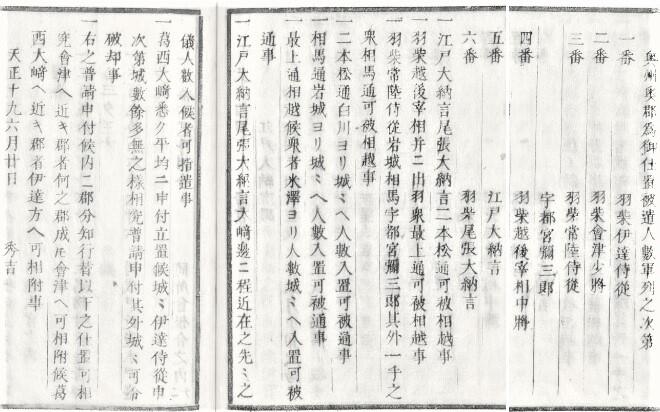 奥州奥郡為御仕置被遣人數軍列之次第
一番 羽柴伊達侍從
二番 羽柴會津少將
三番 羽柴常陸侍從
宇都宮彌三郎
四番 羽柴越後宰相中將
五番 江戸大納言
六番 羽柴尾張大納言
一江戸大納言尾張大納言二本松通可被相越事
一羽柴越後宰相并ニ出羽衆最上通可被相越事
一羽柴常陸侍從岩城相馬宇都宮彌三郎其外一手之
衆相馬通可被相越事
一二本松通白川ヨリ城ミヘ人數入置可被通事
一相馬通岩城ヨリ城ミヘ人數入置可被通事
一最上通相越候衆者米澤ヨリ人數城ミヘ人置可被
通事
一江戸大納言尾張大納言大﨑邊ニ程近在之先ミ之
儀人數入候者可指遣事
一葛西大﨑悉ク平均ニ申付立置候城ミ伊達侍從申
次第城數餘多無之様相究普請申付其外城ミ可令
破却事
一右之普請申付候内ニ郡分知行替以下之仕置可相
究會津ヘ近キ郡者何之郡成圧會津ヘ可相附候葛
西大﨑ヘ近キ郡者伊達方ヘ可相附事
天正十九六月廿日 秀吉